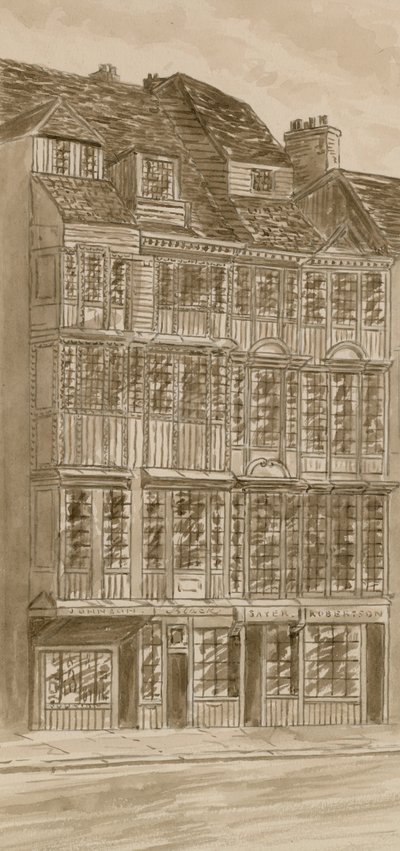 JOHNSON.
Black
SAYER.
ROBERTSON